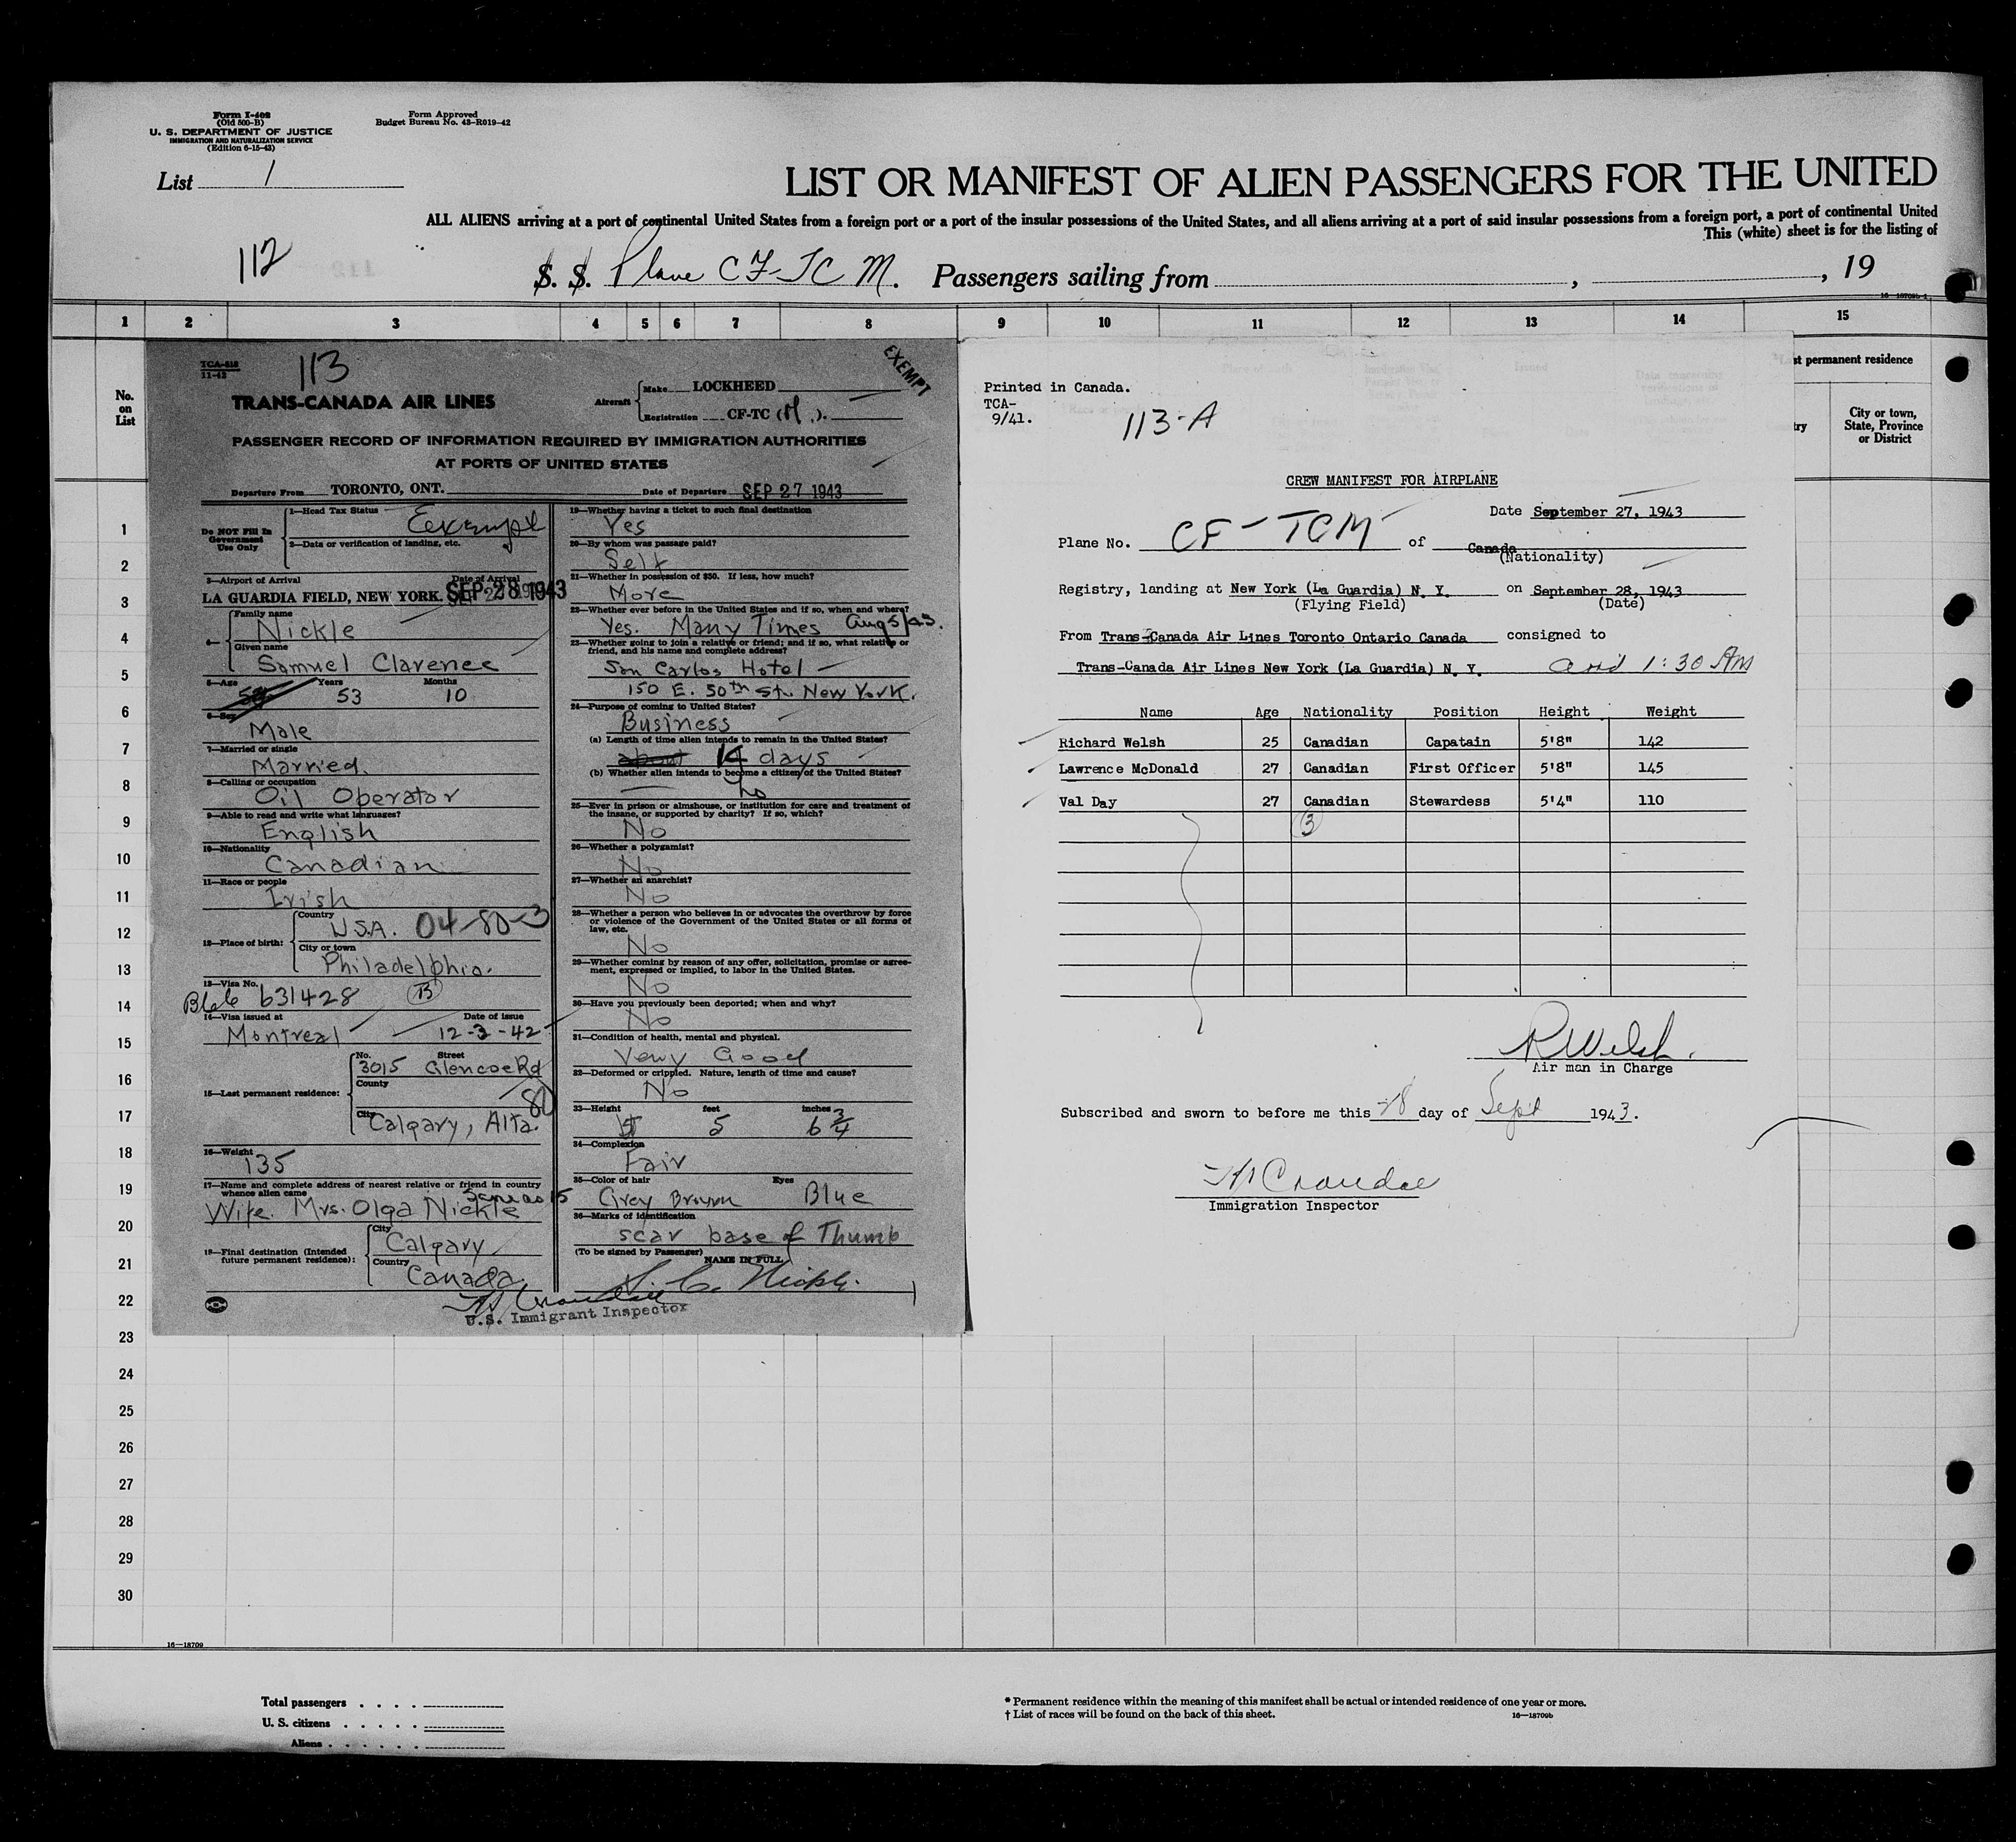 Form I-402
(Old 500-B)
U. S. DEPARTMENT OF JUSTICE
IMMIGRATION AND NATURALIZATION SERVICE
(Edition 6-15-43)
Form Approved
Budget Bureau No. 43-R019-42
List 1
LIST OR MANIFEST OF ALIEN PASSENGERS FOR THE UNITED
ALL ALIENS arriving at a port of continental United States from a foreign port or a port of the insular possessions of the United States, and all aliens arriving at a port of said insular possessions from a foreign port, a port of continental United
This (white) sheet is for the listing of
112
S. S. Plane CF-TCM. Passengers sailing from , , 19
1 2 3 4 5 6 7 8 9 10 11 12 13 14 15
No.
on
List
st permanent residence
ry
City or town,
State, Province
or District
TCA-518
11-42
113
EXEMPT
TRANS-CANADA AIR LINES
Aircraft
Make LOCKHEED
Registration CF-TC (M.).
PASSENGER RECORD OF INFORMATION REQUIRED BY IMMIGRATION AUTHORITIES
AT PORTS OF UNITED STATES
Departure From TORONTO, ONT. Date of Departure SEP 27 1943
Do NOT Fill In
Government
Use Only
1—Head Tax Status Exempt
2—Data or verification of landing, etc.
3—Airport of Arrival Date of Arrival
LA GUARDIA FIELD, NEW YORK. SEP 28 1943
4—
Family name
Nickle
Given name
Samuel Clarence
5—Age Years Months
53 10
6—Sex
Male
7—Married or single
Married.
8—Calling or occupation
Oil Operator
9—Able to read and write what languages?
English
10—Nationality
Canadian
11—Race or people
Irish
12—Place of birth:
Country
U.S.A. 04-80-3
City or town
Philadelphia.
13—Visa No.
631428 B
14—Visa issued at Date of issue
Montreal 12-3-42
15—Last permanent residence:
No. Street
3015 Glencoe Rd
County
80
City
Calgary, Alta.
16—Weight
135
17—Name and complete address of nearest relative or friend in country
whence alien came
Same as 15
Wife. Mrs. Olga Nickle
18—Final destination (Intended
future permanent residence):
City
Calgary
Country
Canada
19—Whether having a ticket to such final destination
Yes
20—By whom was passage paid?
Self
21—Whether in possession of $50. If less, how much?
More
22—Whether ever before in the United States and if so, when and where?
Yes. Many Times Aug 5/43.
23—Whether going to join a relative or friend; and if so, what relative or
friend, and his name and complete address?
San Carlos Hotel
150 E. 50th St. New York.
24—Purpose of coming to United States?
Business
(a) Length of time alien intends to remain in the United States?
about 14 days
(b) Whether alien intends to become a citizen of the United States?
No
25—Ever in prison or almshouse, or institution for care and treatment of
the insane, or supported by charity? If so, which?
No
26—Whether a polygamist?
No
27—Whether an anarchist?
No
28—Whether a person who believes in or advocates the overthrow by force
or violence of the Government of the United States or all forms of
law, etc.
No
29—Whether coming by reason of any offer, solicitation, promise or agree-
ment, expressed or implied, to labor in the United States.
No
30—Have you previously been deported; when and why?
No
31—Condition of health, mental and physical.
Very Good
32—Deformed or crippled. Nature, length of time and cause?
No
33—Height feet inches
5 6 3/4
34—Complexion
Fair
35—Color of hair Eyes
Grey Brown Blue
36—Marks of identification
scar base of Thumb
(To be signed by Passenger)
NAME IN FULL
S. C. Nickle.
H Crandall
U.S. Immigrant Inspector
Printed in Canada.
TCA-
9/41.
113-A
CREW MANIFEST FOR AIRPLANE
Date September 27, 1943
Plane No. CF-TCM of Canada
(Nationality)
Registry, landing at New York (La Guardia) N. Y. on September 28, 1943
(Flying Field) (Date)
From Trans-Canada Air Lines Toronto Ontario Canada consigned to
Trans-Canada Air Lines New York (La Guardia) N. Y. arrd 1:30 AM
Name Age Nationality Position Height Weight
Richard Welsh 25 Canadian Capatain 5'8" 142
Lawrence McDonald 27 Canadian First Officer 5'8" 145
Val Day 27 Canadian Stewardess 5'4" 110
3
R Welsh.
Air man in Charge
Subscribed and sworn to before me this 28 day of Sept 1943.
H Crandall
Immigration Inspector
1
2
3
4
5
6
7
8
9
10
11
12
13
14
15
16
17
18
19
20
21
22
23
24
25
26
27
28
29
30
16—18709
Total passengers
U. S. citizens
Aliens
* Permanent residence within the meaning of this manifest shall be actual or intended residence of one year or more.
† List of races will be found on the back of this sheet.
16—18709b